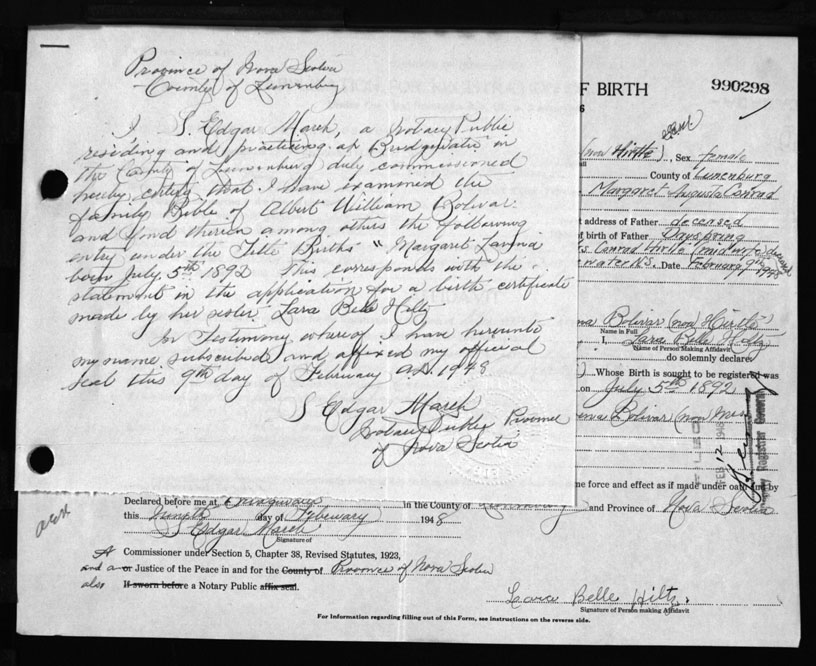 Province of Nova Scotia
County of Lunenburg
I S. Edgar March, a Notary Public
residing and practicing at Bridgewater in
the County of Lunenburg duly commissioned
hereby certify that I have examined the
family Bible of Albert William Bolivar
and find therein among others the following
entry under the Title Births "Margaret
born July 5th 1892 This corresponds with the
statement in the application for a birth certificate
made by her sister Lara Belle Hiltz
In Testimony whereof I have hereunto
my name subscribed and affixed my official
seal this 9th day of February AD 1948
S Edgar March
Notary Public Province
of Nova Scotia
F BIRTH
990298
6
(now Hirtle), Sex female
County of Lunenburg
Margaret Augusta Conrad
address of Father deceased
f birth of Father Dayspring
Conrad Hirtle (midwife) deceased
N.S. Date February 9th 1948
Bolivar (now Hirtle)
Name in Full
I, Lara Belle Hiltz
Name of Person Making Affidavit
do solemnly declare:
Whose Birth is sought to be registered was
on July 5th 1892
Bolivar (now Mrs
FEB 12 1948
Registrar General
me force and effect as if made under oath and by
Declared before me at Bridgewater in the County of Lunenburg and Province of Nova Scotia
this Ninth day of February 1948
S Edgar March
Signature of
A Commissioner under Section 5, Chapter 38, Revised Statutes, 1923,
and a or Justice of the Peace in and for the County of Province of Nova Scotia
also If sworn before a Notary Public affix seal.
Lara Belle Hiltz.
Signature of Person making Affidavit
For Information regarding filling out of this Form, see instructions on the reverse side.